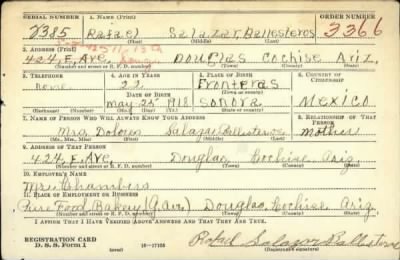 SERIAL NUMBER 1. NAME (Print) ORDER NUMBER
2385 Rafael Salazar Ballesteros 3366
(First) (Middle) (Last)
2. ADDRESS (Print)
424 E. Ave. Douglas Cochise Ariz.
(Number and street or R. F. D. number) (Town) (County) (State)
3. TELEPHONE 4. AGE IN YEARS 5. PLACE OF BIRTH 6. COUNTRY OF CITIZENSHIP
none 22 Fronteras
DATE OF BIRTH
May-25-1918 Sonora Mexico
(Mo.) (Day) (Yr.) (State or country)
7. NAME OF PERSON WHO WILL ALWAYS KNOW YOUR ADDRESS 8. RELATIONSHIP OF THAT PERSON
Mrs. Dolores Salazar Ballesteros mother
(Mr., Mrs., Miss) (First) (Middle) (Last)
9. ADDRESS OF THAT PERSON
424 E. Ave Douglas, Cochise, Ariz.
(Number and street or R. F. D. number) (Town) (County) (State)
10. EMPLOYER'S NAME
Mr. Chambers
11. PLACE OF EMPLOYMENT OR BUSINESS
Pure Food Bakery (G. Ave) Douglas, Cochise Ariz.
(Number and street or R. F. D. number) (Town) (County) (State)
I AFFIRM THAT I HAVE VERIFIED ABOVE ANSWERS AND THAT THEY ARE TRUE.
REGISTRATION CARD
D. S. S. Form 1 16-17105 Rafael Salazar Ballesteros
(Registrant's signature)